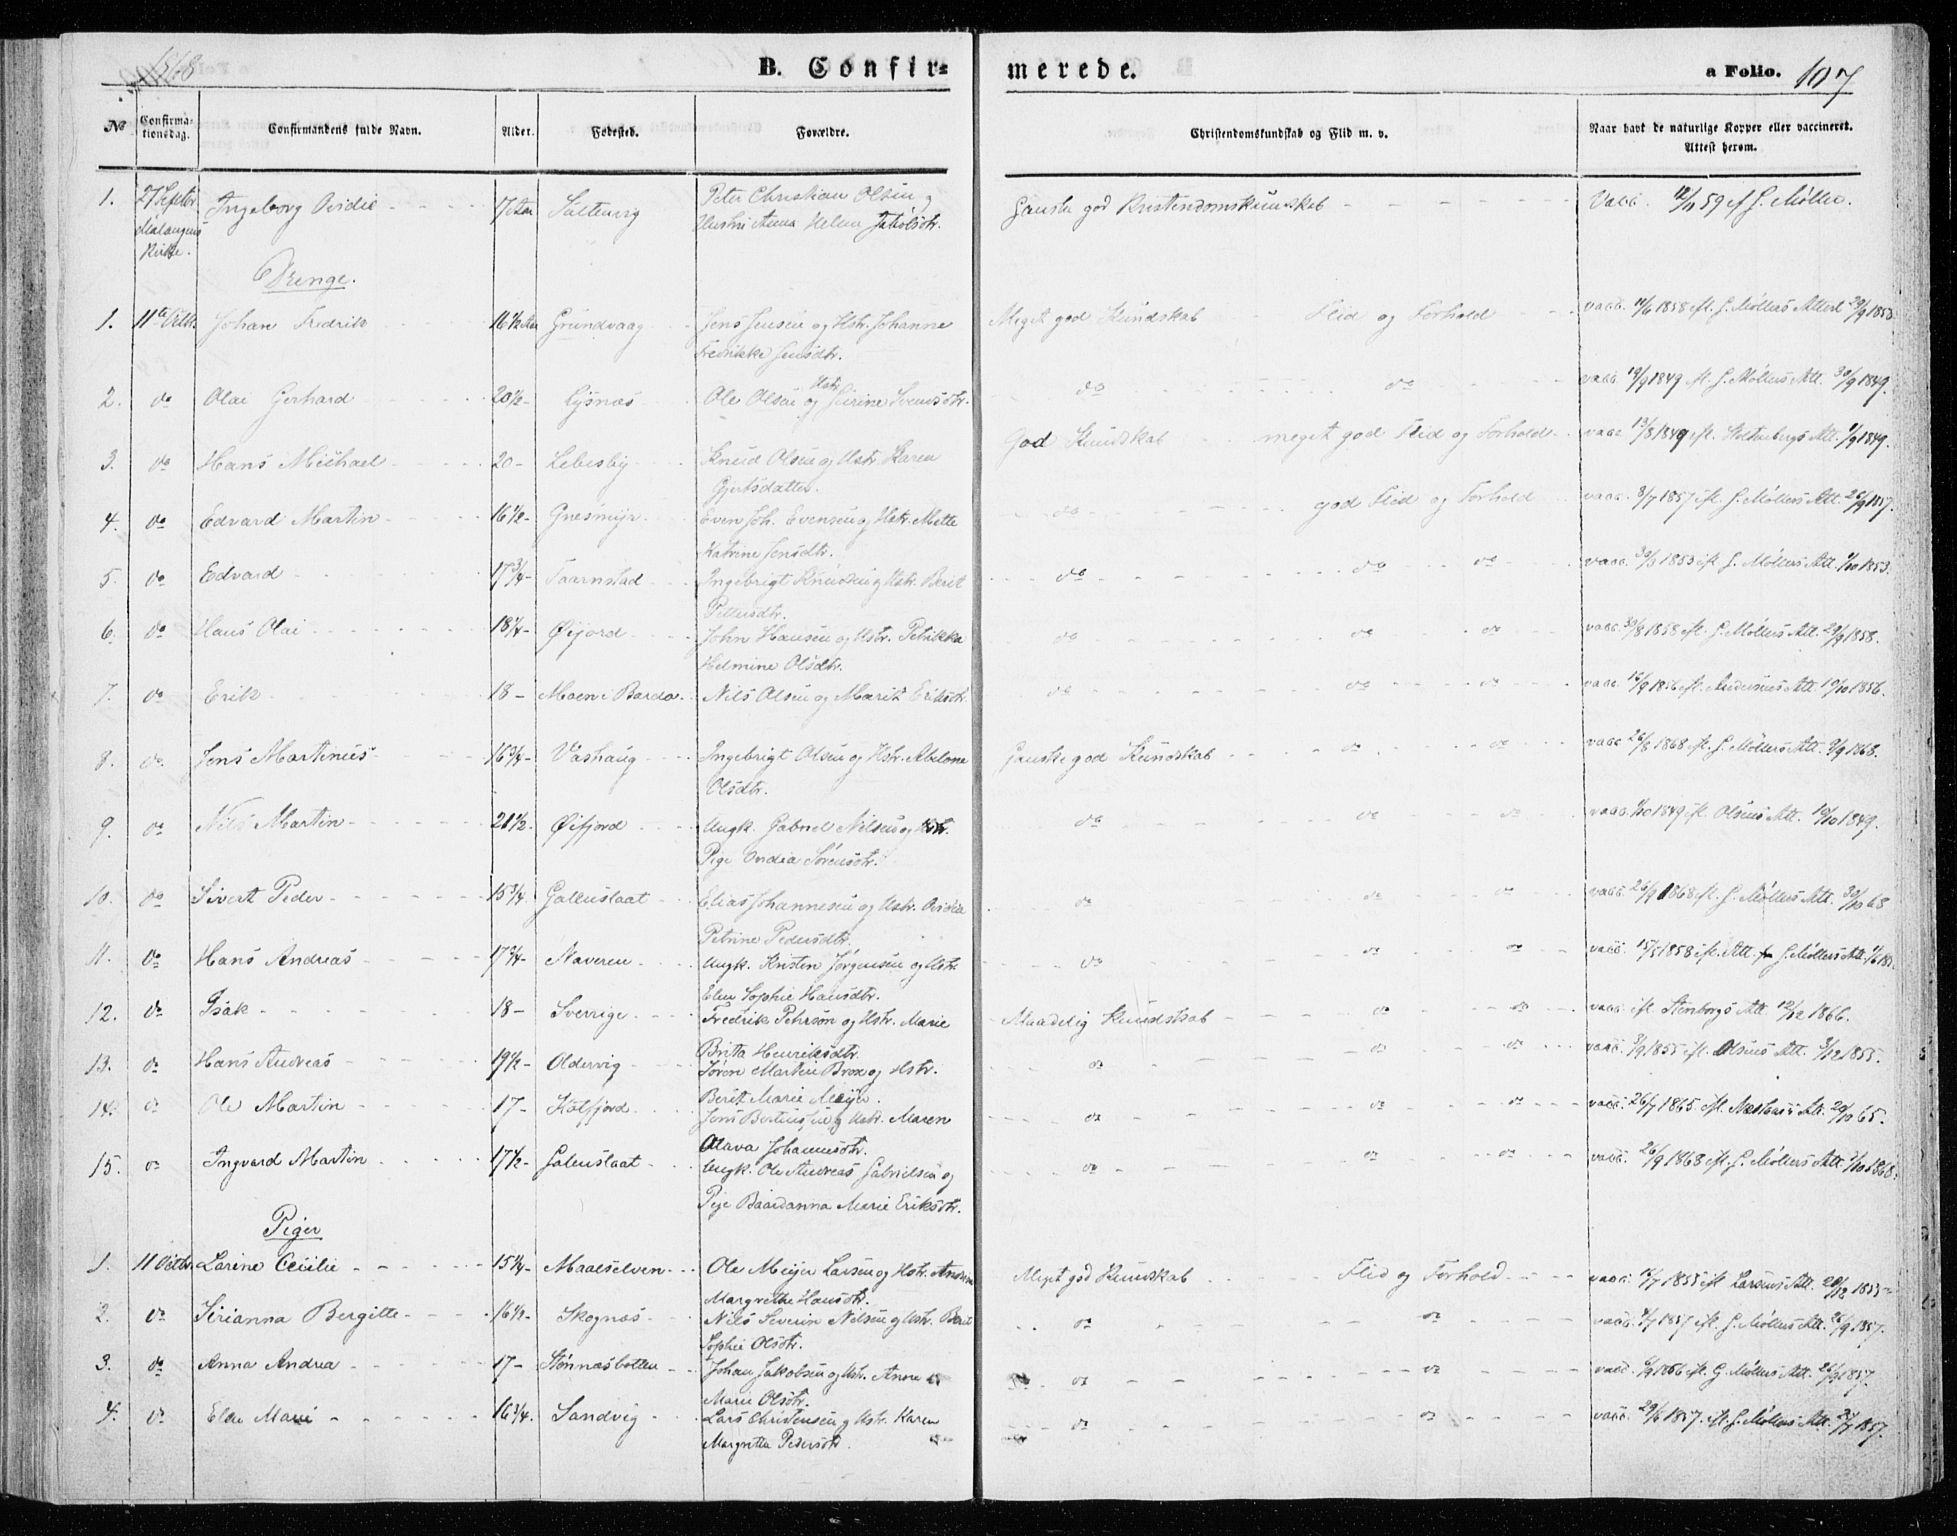 1868
B. Confirmerede.
a Folio. 107
No
Confirmationsdag.
Confirmandens fulde Navn.
Alder.
Fødested.
Forældre.
Christendomskundskab og Flid m. v.
Naar havt de naturlige Kopper eller vaccineret. Attest herom.
1. 27 Septbr Malangens Kirke. Ingeborg Ovidie 17 Aar Sultenvig Peter Christian Olsen og Hustru Anna Helene Jakobsdtr. Ganske god Kristendomskundskab Vacc. 59 ef G. Møller.
Drenge.
1. 11te Octbr. Johan Fredrik 16½ Aar Grundvaag Jens Jensen og Hstr. Johanne Fredrikke Jensdtr. Meget god Kundskab Flid og Forhold vacc. 11/6 1858 efl. G. Møllers Attest
2. do Olai Gerhard 20½ - Lysnæs Ole Olsen og Hstr Sirine Svendsdtr. do do vacc. 19/9 1849 efl. G. Møllers Att. 30/9 1849.
3. do Hans Michael 20 - Lebesby Knud Olsen og Hstr. Karen Gjertsdatter. God Kundskab meget god Flid og Forhold vacc. 13/8 1849 efl. Stoltenbergs Att. 1/9 1849.
4. do Edvard Martin 16½ - Gnesmyr Even Joh. Evensen og Hstr. Mette Katrine Jensdtr. do god Flid og Forhold vacc. 8/7 1857 efl. G. Møllers Att. 26/9 1857.
5. do Edvard 17¾ - Taarnstad Ingebrigt Knudsen og Hstr. Berit Pettersdtr. do do do vacc. 1853 efl. G. Møllers Att. 1/10 1853.
6. do Hans Olai 18¼ - Øijord John Hansen og Hstr. Petrikka Helmine Olsdtr. do do do vacc. 30/8 1858 efl. G. Møllers Att. 29/9 1858.
7. do Erik 18 - Moen i Bardo Nils Olsen og Marit Eriksdtr. do do do vacc. 16/9 1856 efl. Andersens Att. 19/10 1856.
8. do Jens Martinus 16¾ - Vashaug Ingebrigt Olsen og Hstr. Abelone Olsdtr. Ganske god Kundskab do do vacc. 26/8 1868 efl. G. Møllers Att. 1868.
9. do Nils Martin 21½. Øifjord Ungk. Gabriel Nilsen og Pige Andrea Sørensdtr. do do do vacc. 1849 efl. Olsens Att. 10/10 1849.
10. do Sivert Peder 15¾. Galenslaat Elias Johannesen og Hstr. Ovidia Petrine Pedersdtr. do do do vacc. 26/9 1868 efl. G. Møllers Att. 30/10 68
11. do Hans Andreas 17¾ - Naveren Ungk. Kristen Jørgensen og Hstr. Elen Sophie Hansdtr. do do do vacc. 15/5 1858 efl. Att. G. Møllers Att.
12. do Isak 18 - Sverrige Fredrik Pehrson og Hstr. Marie Brita Henriksdtr. Maadelig Kundskab do do vacc. efl. Stenborgs Att. 12/12 1866.
13. do Hans Andreas 19½ - Oldervig Søren Martin Brox og Hstr. Berit Marie Meijer. do do do vacc. 1855 efl. Olsens Att. 3/12 1855.
14. do Ole Martin 17 - Kalfjord Jens Bertinsen og Hstr. Maren Olava Johannesdtr. do do do vacc. 26/7 1865. efl. Att. 20/10 65.
15. do Ingvard Martin 17½ - Galenslaat Ungk. Ole Andreas Gabrielsen og Pige Baardanna Marie Eriksdtr. do do do vacc. 26/9 1868 efl. G. Møllers Att. 1/10 1868.
Piger
1. 11 Octbr. Larine Cecilie 15¼ - Maalselven Ole Meijer Larsen og Hstr. Margrethe Hansdtr. Meget god Kundskab Flid og Forhold vacc. 1855 efl. Larsens Att. 1855
2. do Sirianna Bergitte 16½ - Skognæs Nils Severin Nilsen og Hstr. Berit Sophie Olsdtr. do do vacc. 1857 efl. G. Møllers Att. 26/9 1857.
3. do Anna Andrea 17 - Stønnæsbotten Johan Jakobsen og Hstr. Anne Marie Olsdtr. do do vacc. 1856 efl. G. Møllers Att. 1857.
4. do Elen Marie 16¾. Sandvig Lars Christensen og Hstr. Karen Margretha Pedersdtr. do do vacc. 29/6 1857. efl. G. Møllers Att. 1857.